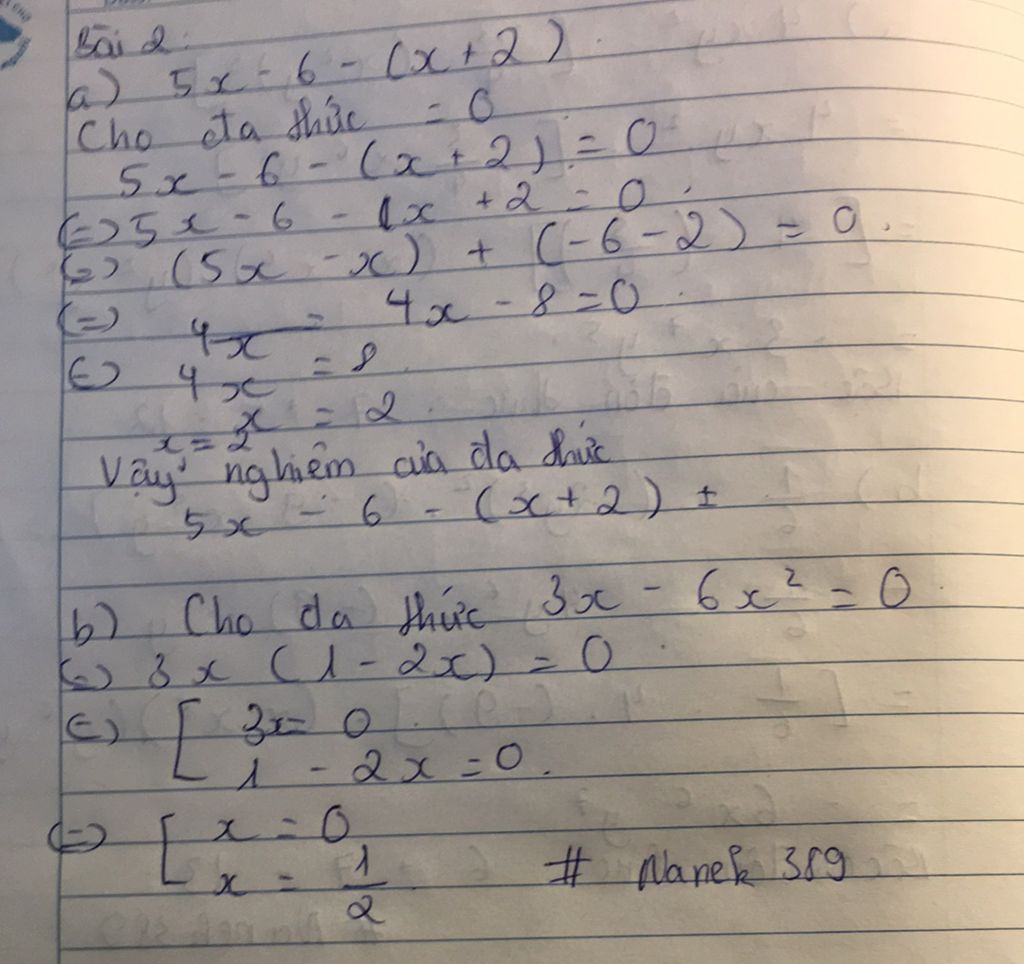 Bài 2:
a) 5x - 6 - (x + 2)
Cho đa thức = 0
5x - 6 - (x + 2) = 0
(=) 5x - 6 - x + 2 = 0
(=) (5x - x) + (-6 - 2) = 0
(=) 4x = 4x - 8 = 0
(=) 4x = 8
x = 2
x = 2
Vậy nghiệm của đa thức
5x - 6 - (x + 2) ±
b) Cho đa thức 3x - 6x² = 0
(=) 3x (1 - 2x) = 0
(=) [ 3x = 0
1 - 2x = 0.
(=) [ x = 0
x = 1/2
# Nanek 389